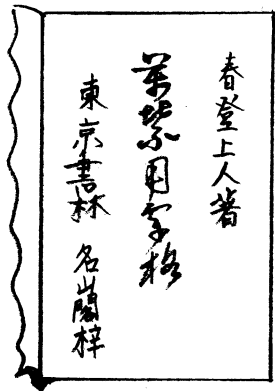 春登上人著
萬葉用字格
東京書林 名山閣梓